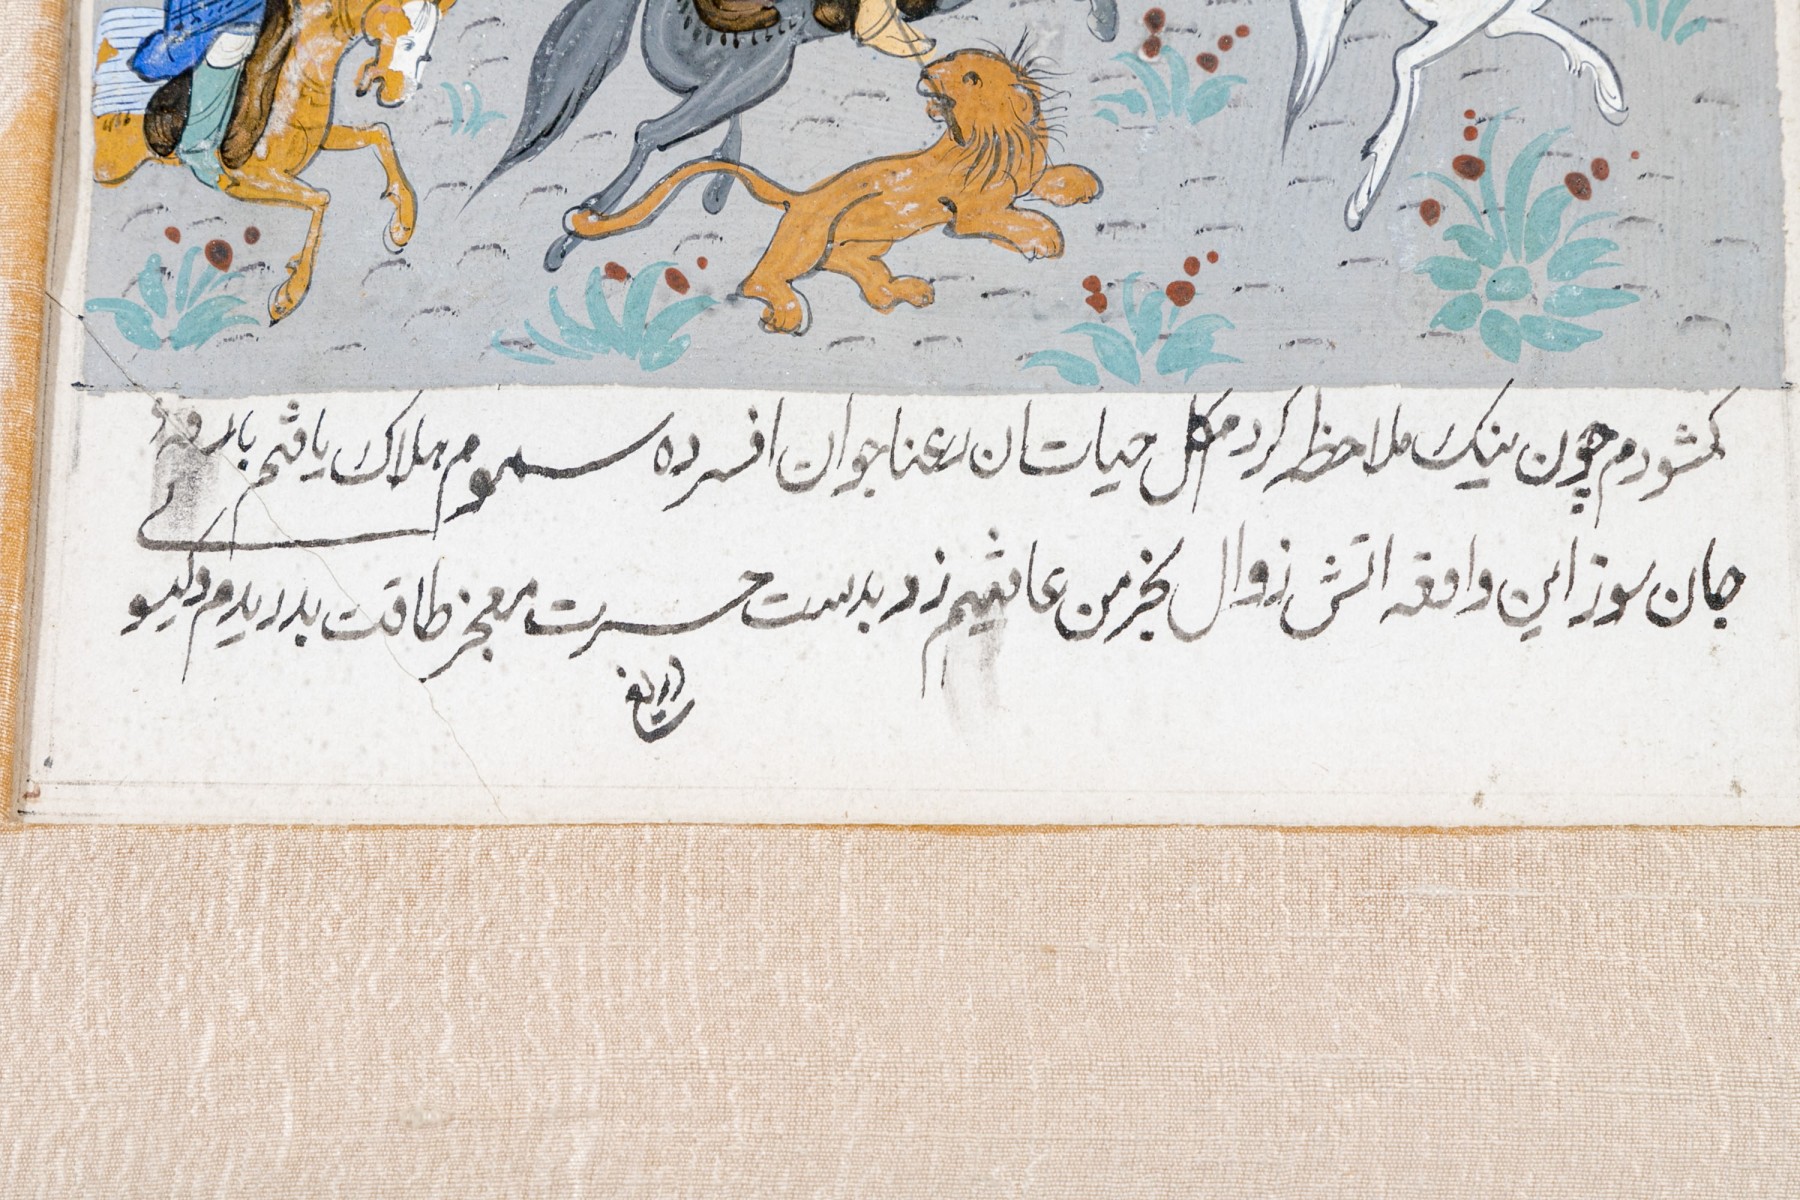 کمشودم چون نیک ملاحظه کردم گل حیاتشان رعنا جوان افسرده سموم هلاک یافتم
جان سوز این واقعه اتش زوال بخرمن عافیتم زد بدست حسرت معجز طاقت بدریدم و گیسو
دریغ